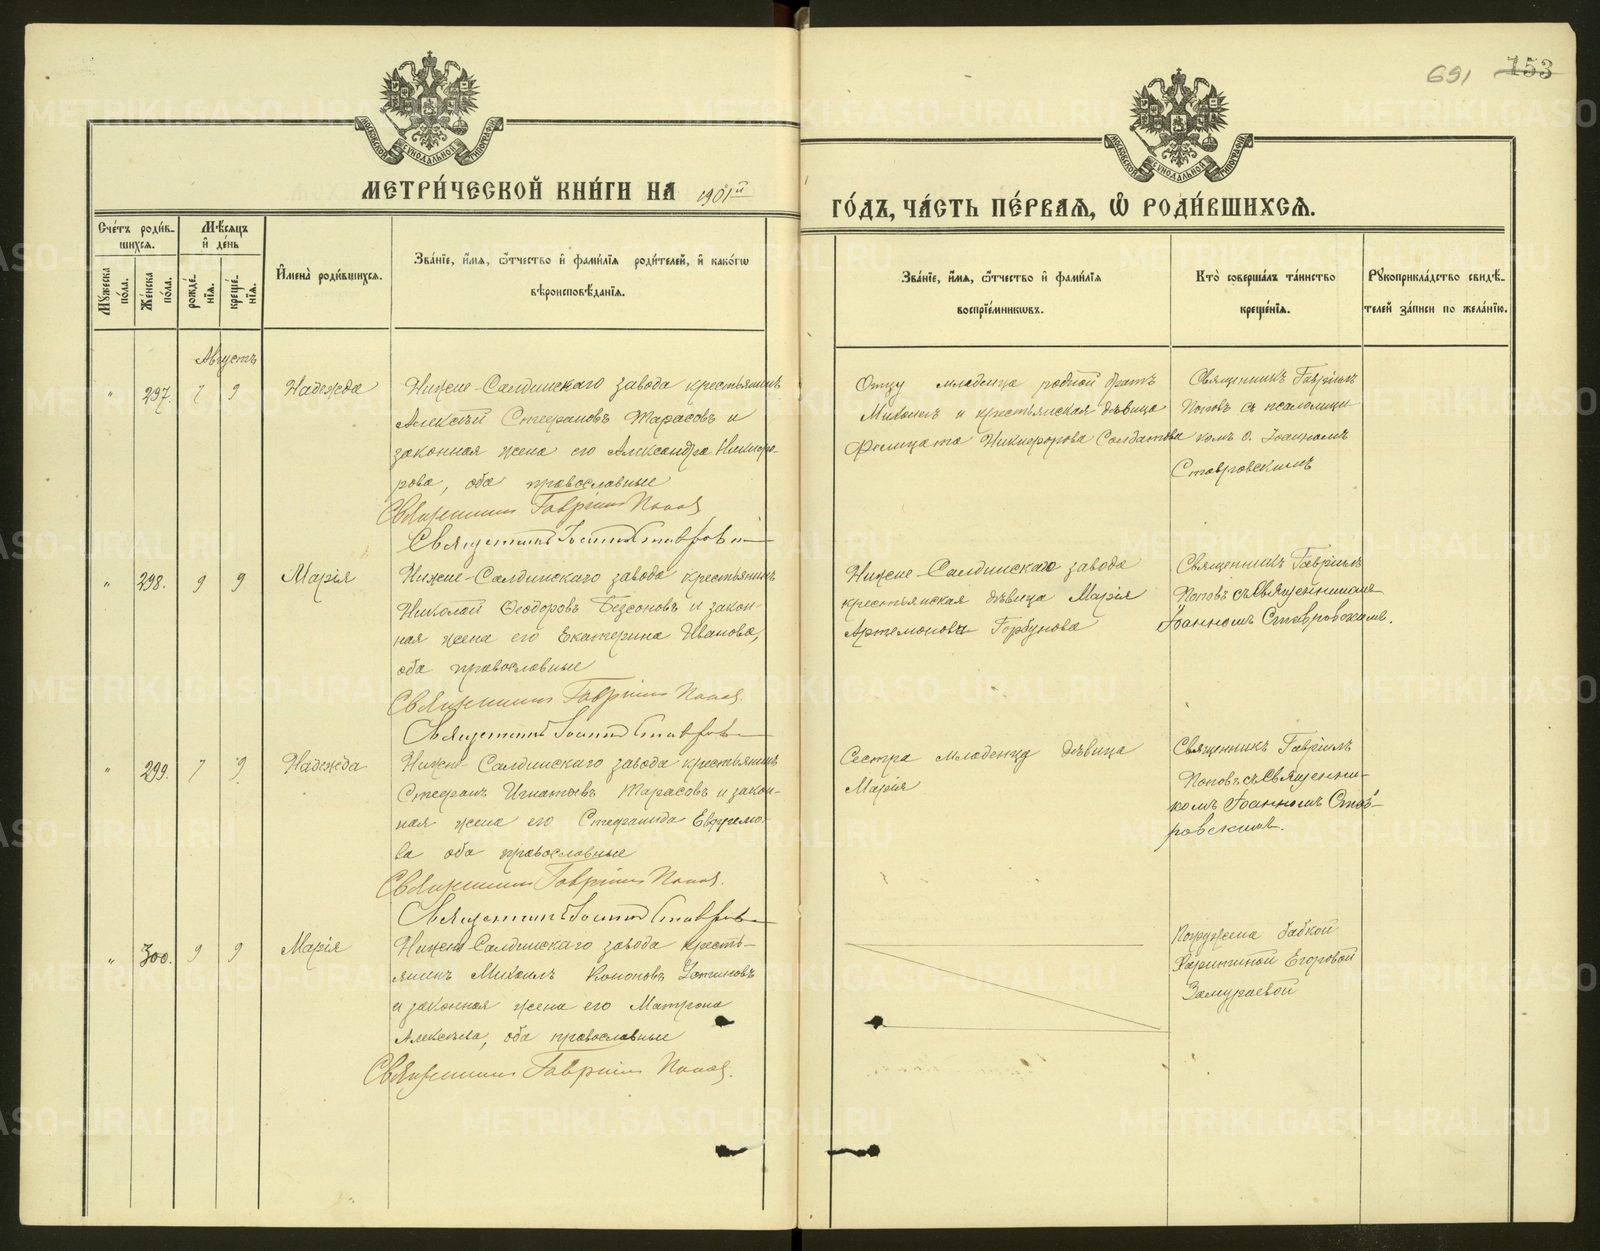 691 153
МОСКОВСКОЙ СѴНОДАЛЬНОЙ ТИПОГРАФІИ
МОСКОВСКОЙ СѴНОДАЛЬНОЙ ТИПОГРАФІИ
МЕТРИ́ЧЕСКОЙ КНИ́ГИ НА 1901й
ГО́ДЪ, ЧА́СТЬ ПЕ́РВАѦ, Ѡ РОДИ́ВШИХСѦ.
Сче́тъ роди́в-
шихсѧ.
Мѣ́сѧцъ
и҆ де́нь
Мꙋ́жеска по́ла.
Же́нска по́ла.
рожде́-
нїѧ.
креще́-
нїѧ.
И҆мена̀ роди́вшихсѧ.
Зва́нїе, и҆́мѧ, ѻ҆́тчество и҆ фами́лїѧ роди́телей, и҆ како́гѡ
вѣроисповѣ́данїѧ.
Зва́нїе, и҆́мѧ, ѻ҆́тчество и҆ фами́лїѧ
воспрїе́мникѡвъ.
Кто̀ соверша́лъ та́инство
креще́нїѧ.
Рꙋкоприкла́дство свидѣ́-
телей за́писи по жела́нїю.
Августъ
" 297. 7 9 Надежда
Нижне-Салдинскаго завода крестьянинъ
Алексѣй Стефановъ Тарасовъ и
законная жена его Александра Никифо-
рова, оба православные
Священникъ Гавріилъ Поповъ
Священникъ Іоаннъ Ставровскій
Отцу младенца родной братъ
Михаилъ и крестьянская дѣвица
Фелицата Никифорова Солдатова
Священникъ Гавріилъ
Поповъ съ псаломщи-
комъ о. Іоанномъ
Ставровскимъ
" 298. 9 9 Марія
Нижне-Салдинскаго завода крестьянинъ
Николай Ѳеодоровъ Безсоновъ и закон-
ная жена его Екатерина Иванова,
оба православные
Священникъ Гавріилъ Поповъ
Священникъ Іоаннъ Ставровскій
Нижне-Салдинскаго завода
крестьянская дѣвица Марія
Артемонова Горбунова
Священникъ Гавріилъ
Поповъ съ Священникомъ
Іоанномъ Ставровскимъ.
" 299. 7 9 Надежда
Нижне-Салдинскаго завода крестьянинъ
Стефанъ Игнатьевъ Тарасовъ и закон-
ная жена его Стефанида Евфремо-
ва оба православные
Священникъ Гавріилъ Поповъ.
Священникъ Іоаннъ Ставровскій
Сестра младенцу дѣвица
Марія
Священникъ Гавріилъ
Поповъ съ Священни-
комъ Іоанномъ Став-
ровскимъ.
" 300. 9 9 Марія
Нижне-Салдинскаго завода кресть-
янинъ Михаилъ Кононовъ Устиновъ
и законная жена его Матрона
Алексѣева, оба православные
Священникъ Гавріилъ Поповъ.
Погружена бабкой
Харитиной Егоровой
Замураевой
METRIKI.GASO-URAL.RU